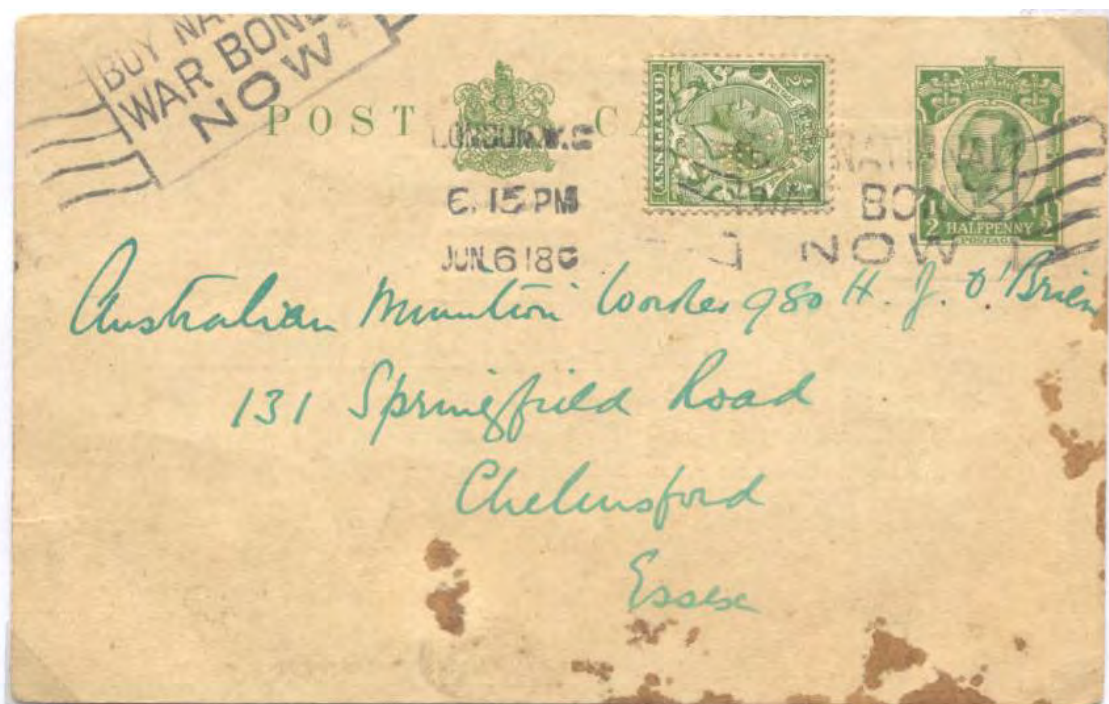 BUY
WAR BOND
NOW
POST
LONDON. W.C
6. 15 PM
JUN 6 18
HALFPENNY
NATIONAL
BONDS
NOW
1/2 HALFPENNY 1/2
POSTAGE
Australian Munition Worker 980 H. J. O'Brien
131 Springfield Road
Chelmsford
Essex